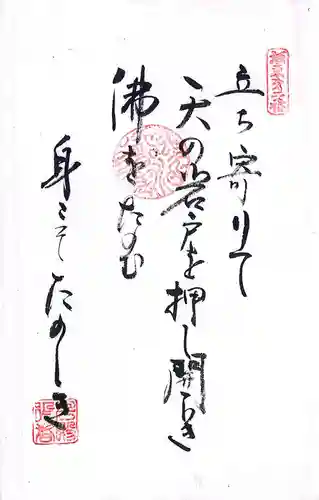 立ち寄りて
天の岩戸を押し開らき
佛をたのむ
身こそたのしき